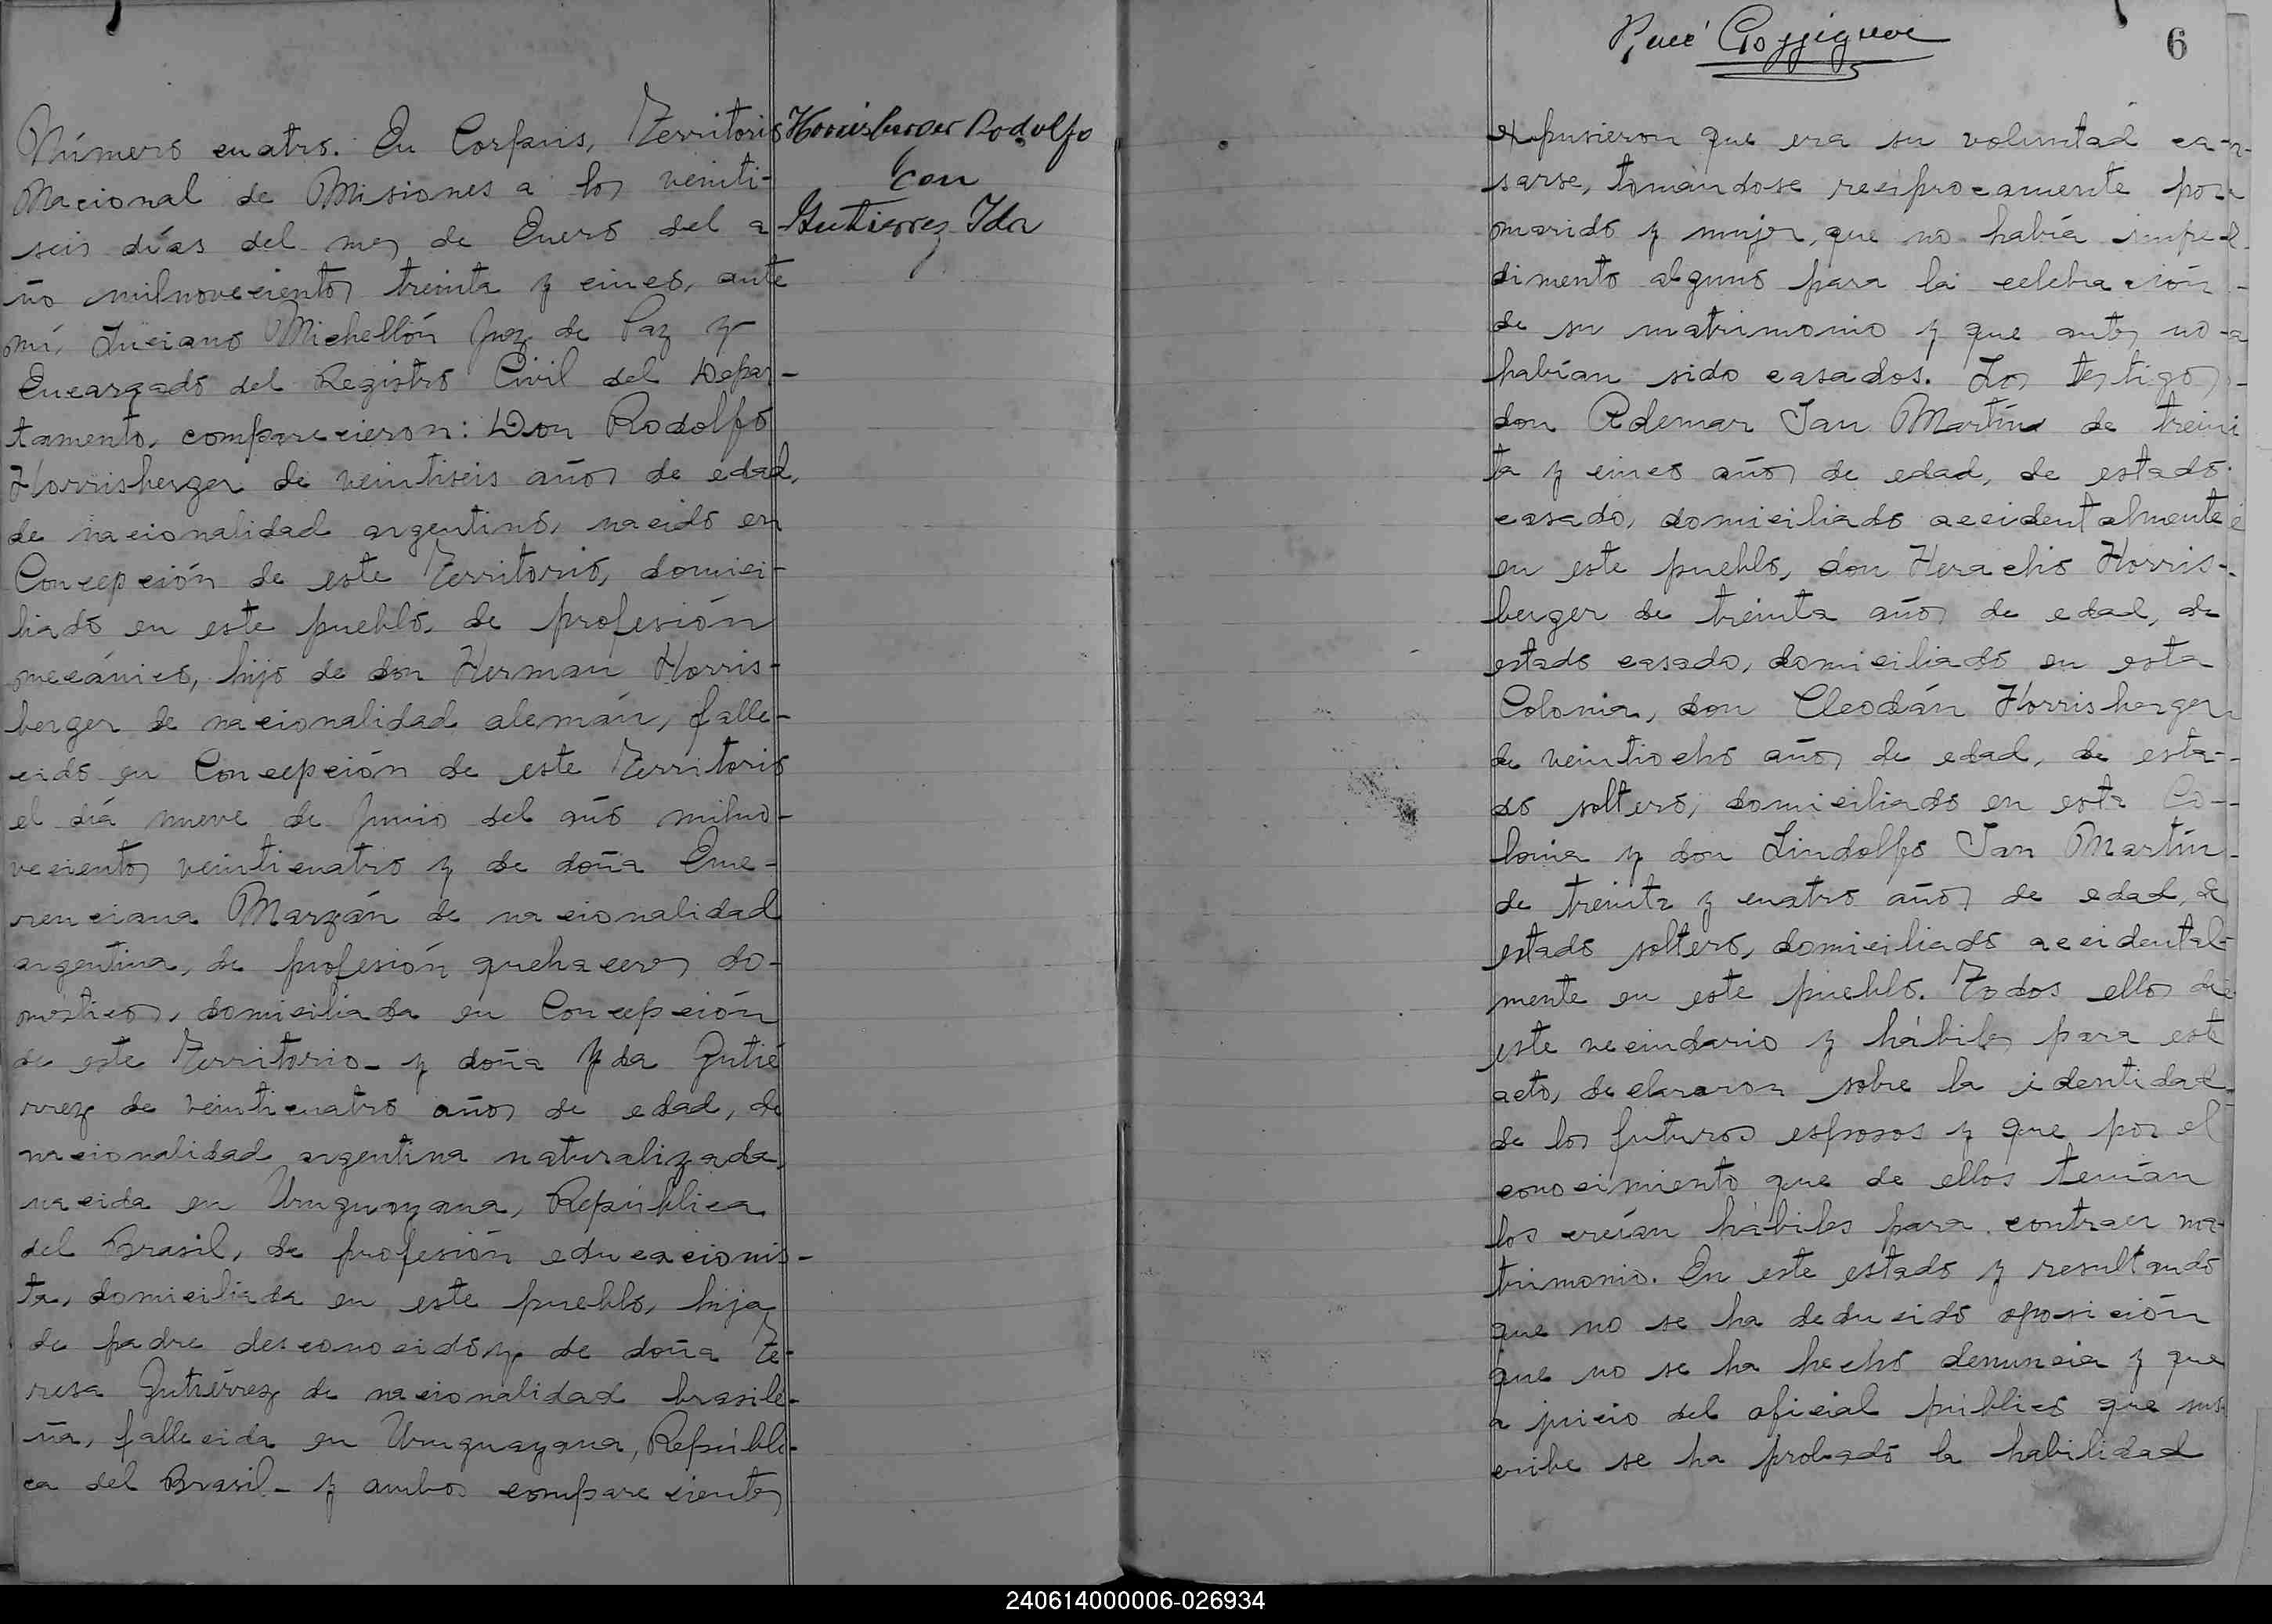 Número cuatro. En Corpus, Territorio
Nacional de Misiones a los veinti-
seis días del mes de Enero del a-
ño milnovecientos treinta y cinco, ante
mí, Luciano Michellón Juez de Paz y
Encargado del Registro Civil del Depar-
tamento, comparecieron: Don Rodolfo
Horrisberger de veintiseis años de edad,
de nacionalidad argentino, nacido en
Concepción de este Territorio, domici-
liado en este pueblo, de profesión
mecánico, hijo de don Herman Horris-
berger de nacionalidad alemán, falle-
cido en Concepción de este Territorio
el día nueve de Junio del año milno-
vecientos veinticuatro y de doña Eme-
renciana Marzán de nacionalidad
argentina, de profesión quehaceres do-
mésticos, domiciliada en Concepción
de este Territorio- y doña Yda Gutié
rrez de veinticuatro años de edad, de
nacionalidad argentina naturalizada,
nacida en Uruguayana, República
del Brasil, de profesión educacionis-
ta, domiciliada en este pueblo, hija
de padre desconocido y de doña Te-
resa Gutiérrez de nacionalidad brasile-
ña, fallecida en Uruguayana, Repúbli-
ca del Brasil- y ambos comparecientes
Horrisberger Rodolfo
con
Gutierrez Ida
6
expusieron que era su voluntad ca-
sarse, tomándose recíprocamente por
marido y mujer, que no había impe-
dimento alguno para la celebración
de su matrimonio y que antes no
habían sido casados. Los testigos
don Ademar San Martín de trein
ta y cinco años de edad, de estado
casado, domiciliado accidentalmente
en este pueblo, don Heraclio Horris-
berger de treinta años de edad, de
estado casado, domiciliado en esta
Colonia, don Cleodán Horrisberger
de veintiocho años de edad, de esta-
do soltero, domiciliado en esta Co-
lonia y don Lindolfo San Martín
de treinta y cuatro años de edad, de
estado soltero, domiciliado accidental-
mente en este pueblo. Todos ellos de
este vecindario y hábiles para este
acto, declararon sobre la identidad
de los futuros esposos y que por el
conocimiento que de ellos tenían
los creían hábiles para contraer ma-
trimonio. En este estado y resultando
que no se ha deducido oposición
que no se ha hecho denuncia y que
a juicio del oficial público que sus
cribe se ha probado la habilidad
240614000006-026934